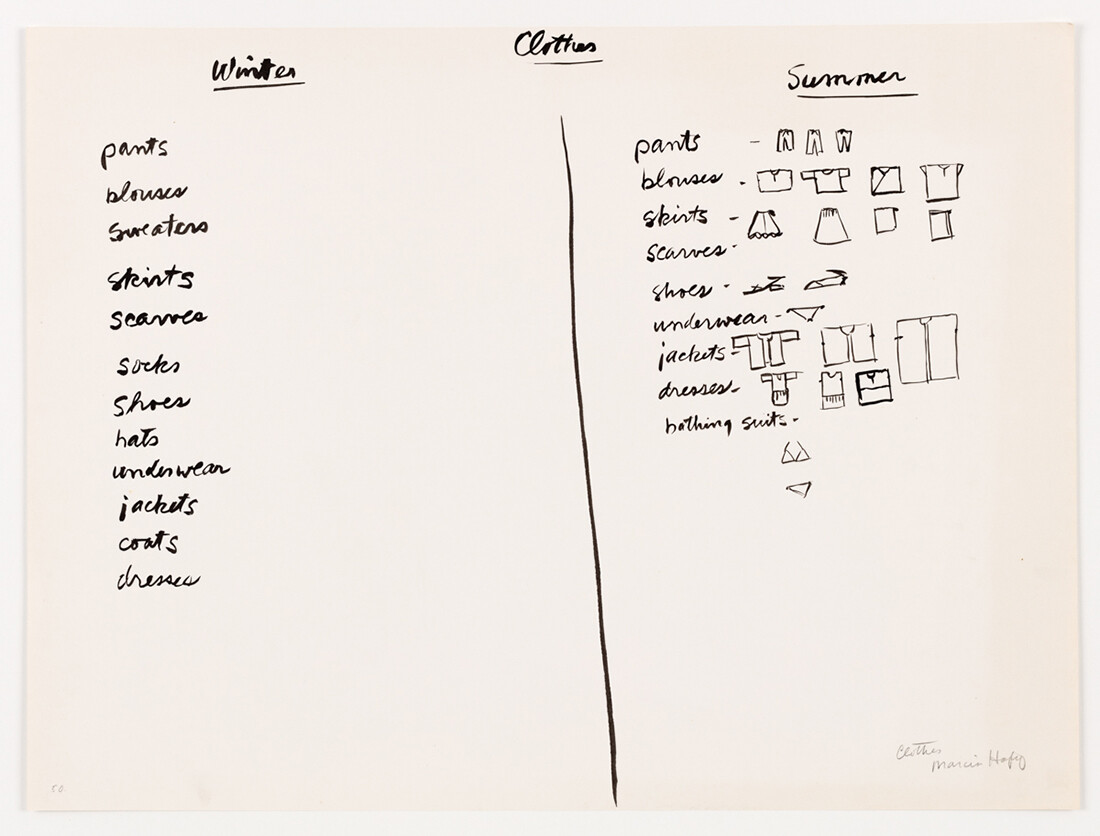 Clothes
Winter
pants
blouses
sweaters
skirts
scarves
socks
shoes
hats
underwear
jackets
coats
dresses
Summer
pants -
blouses -
skirts -
scarves -
shoes -
underwear -
jackets -
dresses -
bathing suits -
Clothes
Marcia Hafif